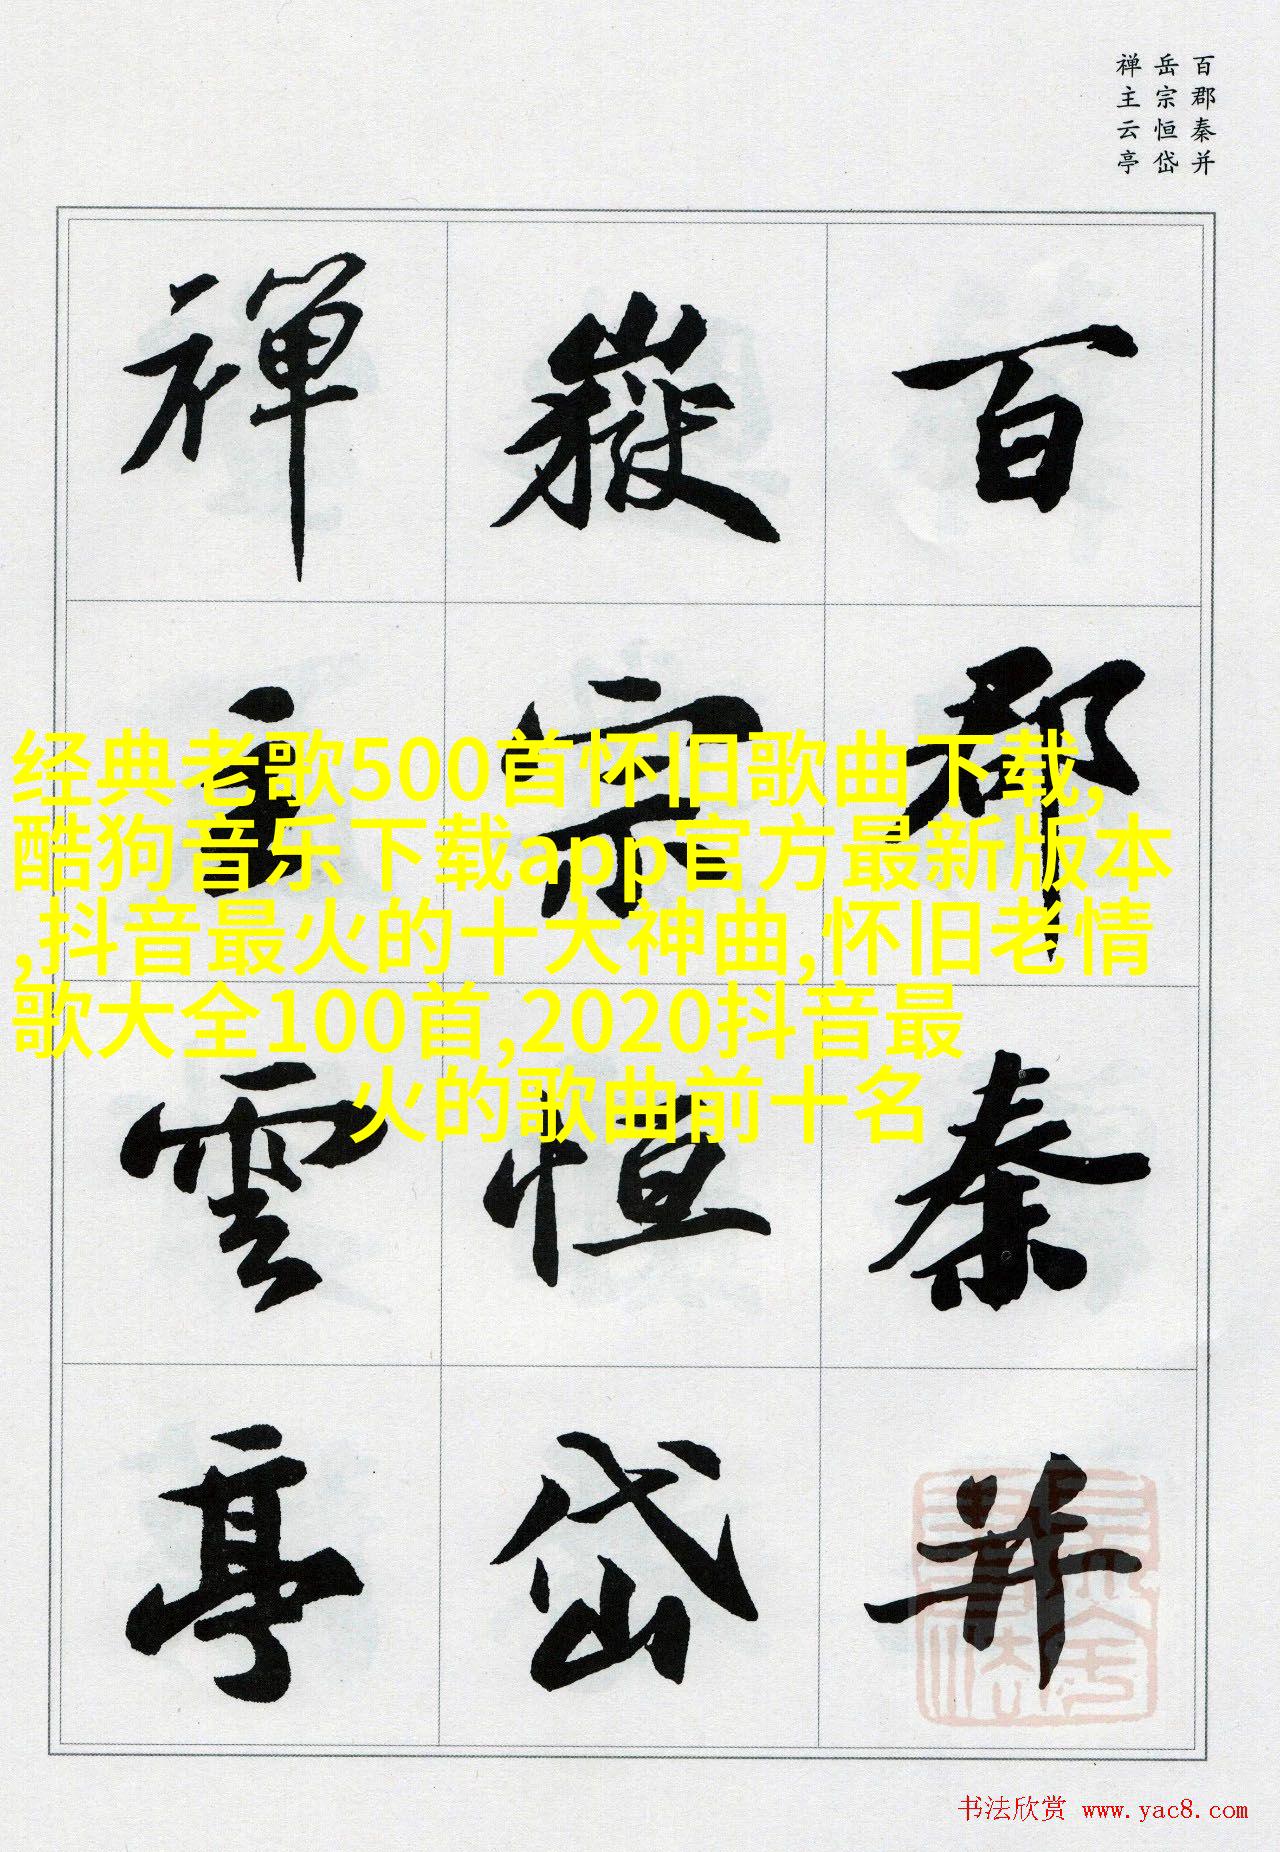 百郡秦并
岳宗恒岱
禅主云亭
百郡秦并
嶽宗恒岱
禪主雲亭
经典老歌500首怀旧歌曲下载,
酷狗音乐下载app官方最新版本
,抖音最火的十大神曲,怀旧老情
歌大全100首,2020抖音最
火的歌曲前十名
书法欣赏 www.yac8.com